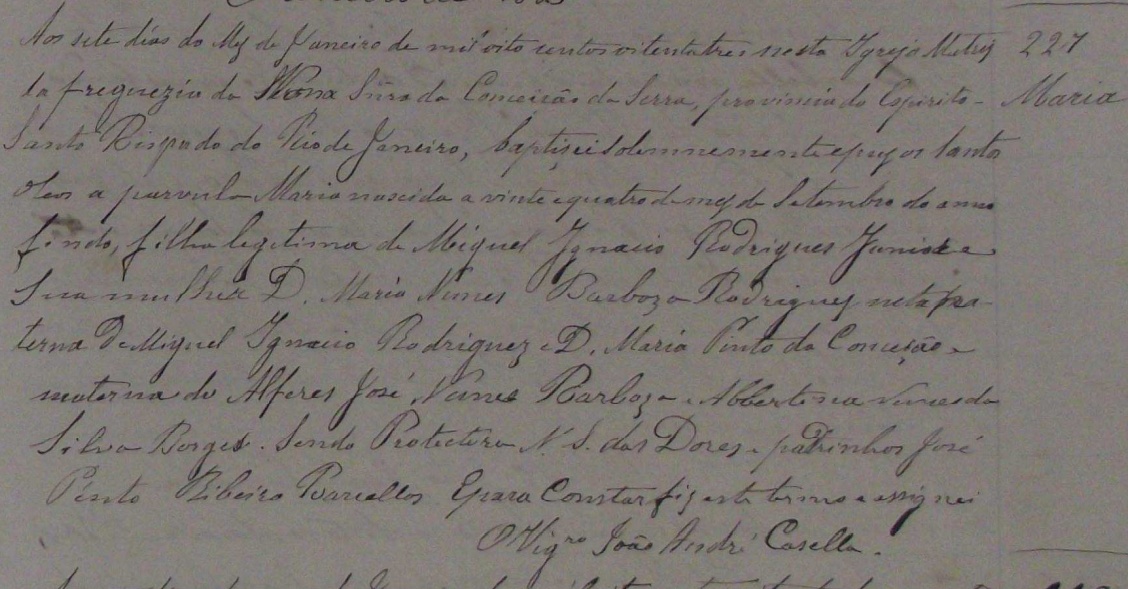 Aos sete dias do Mez de Janeiro de mil oito centos oitenta tres nesta Igreja Matriz 227
da freguezia da Nossa Snra da Conceição da Serra, provincia do Espirito- Maria
Santo Bispado do Rio de Janeiro, baptisei solemnemente e puz os Santos
Oleos a parvula Maria nascida a vinte e quatro de mez de Setembro do anno
findo, filha legitima de Miguel Ignacio Rodrigues Junior e
Sua mulher D. Maria Nunes Barboza Rodrigues neta pa-
terna de Miguel Ignacio Rodriguez e D. Maria Pinto da Conceição e
materna do Alferes José Nunes Barboza e Albertina Nunes da
Silva Borges. Sendo Protectora N. S. das Dores e padrinhos José
Pinto Ribeiro Barcellos. E para Constar fiz este termo e assignei
O Vigro João André Casella.